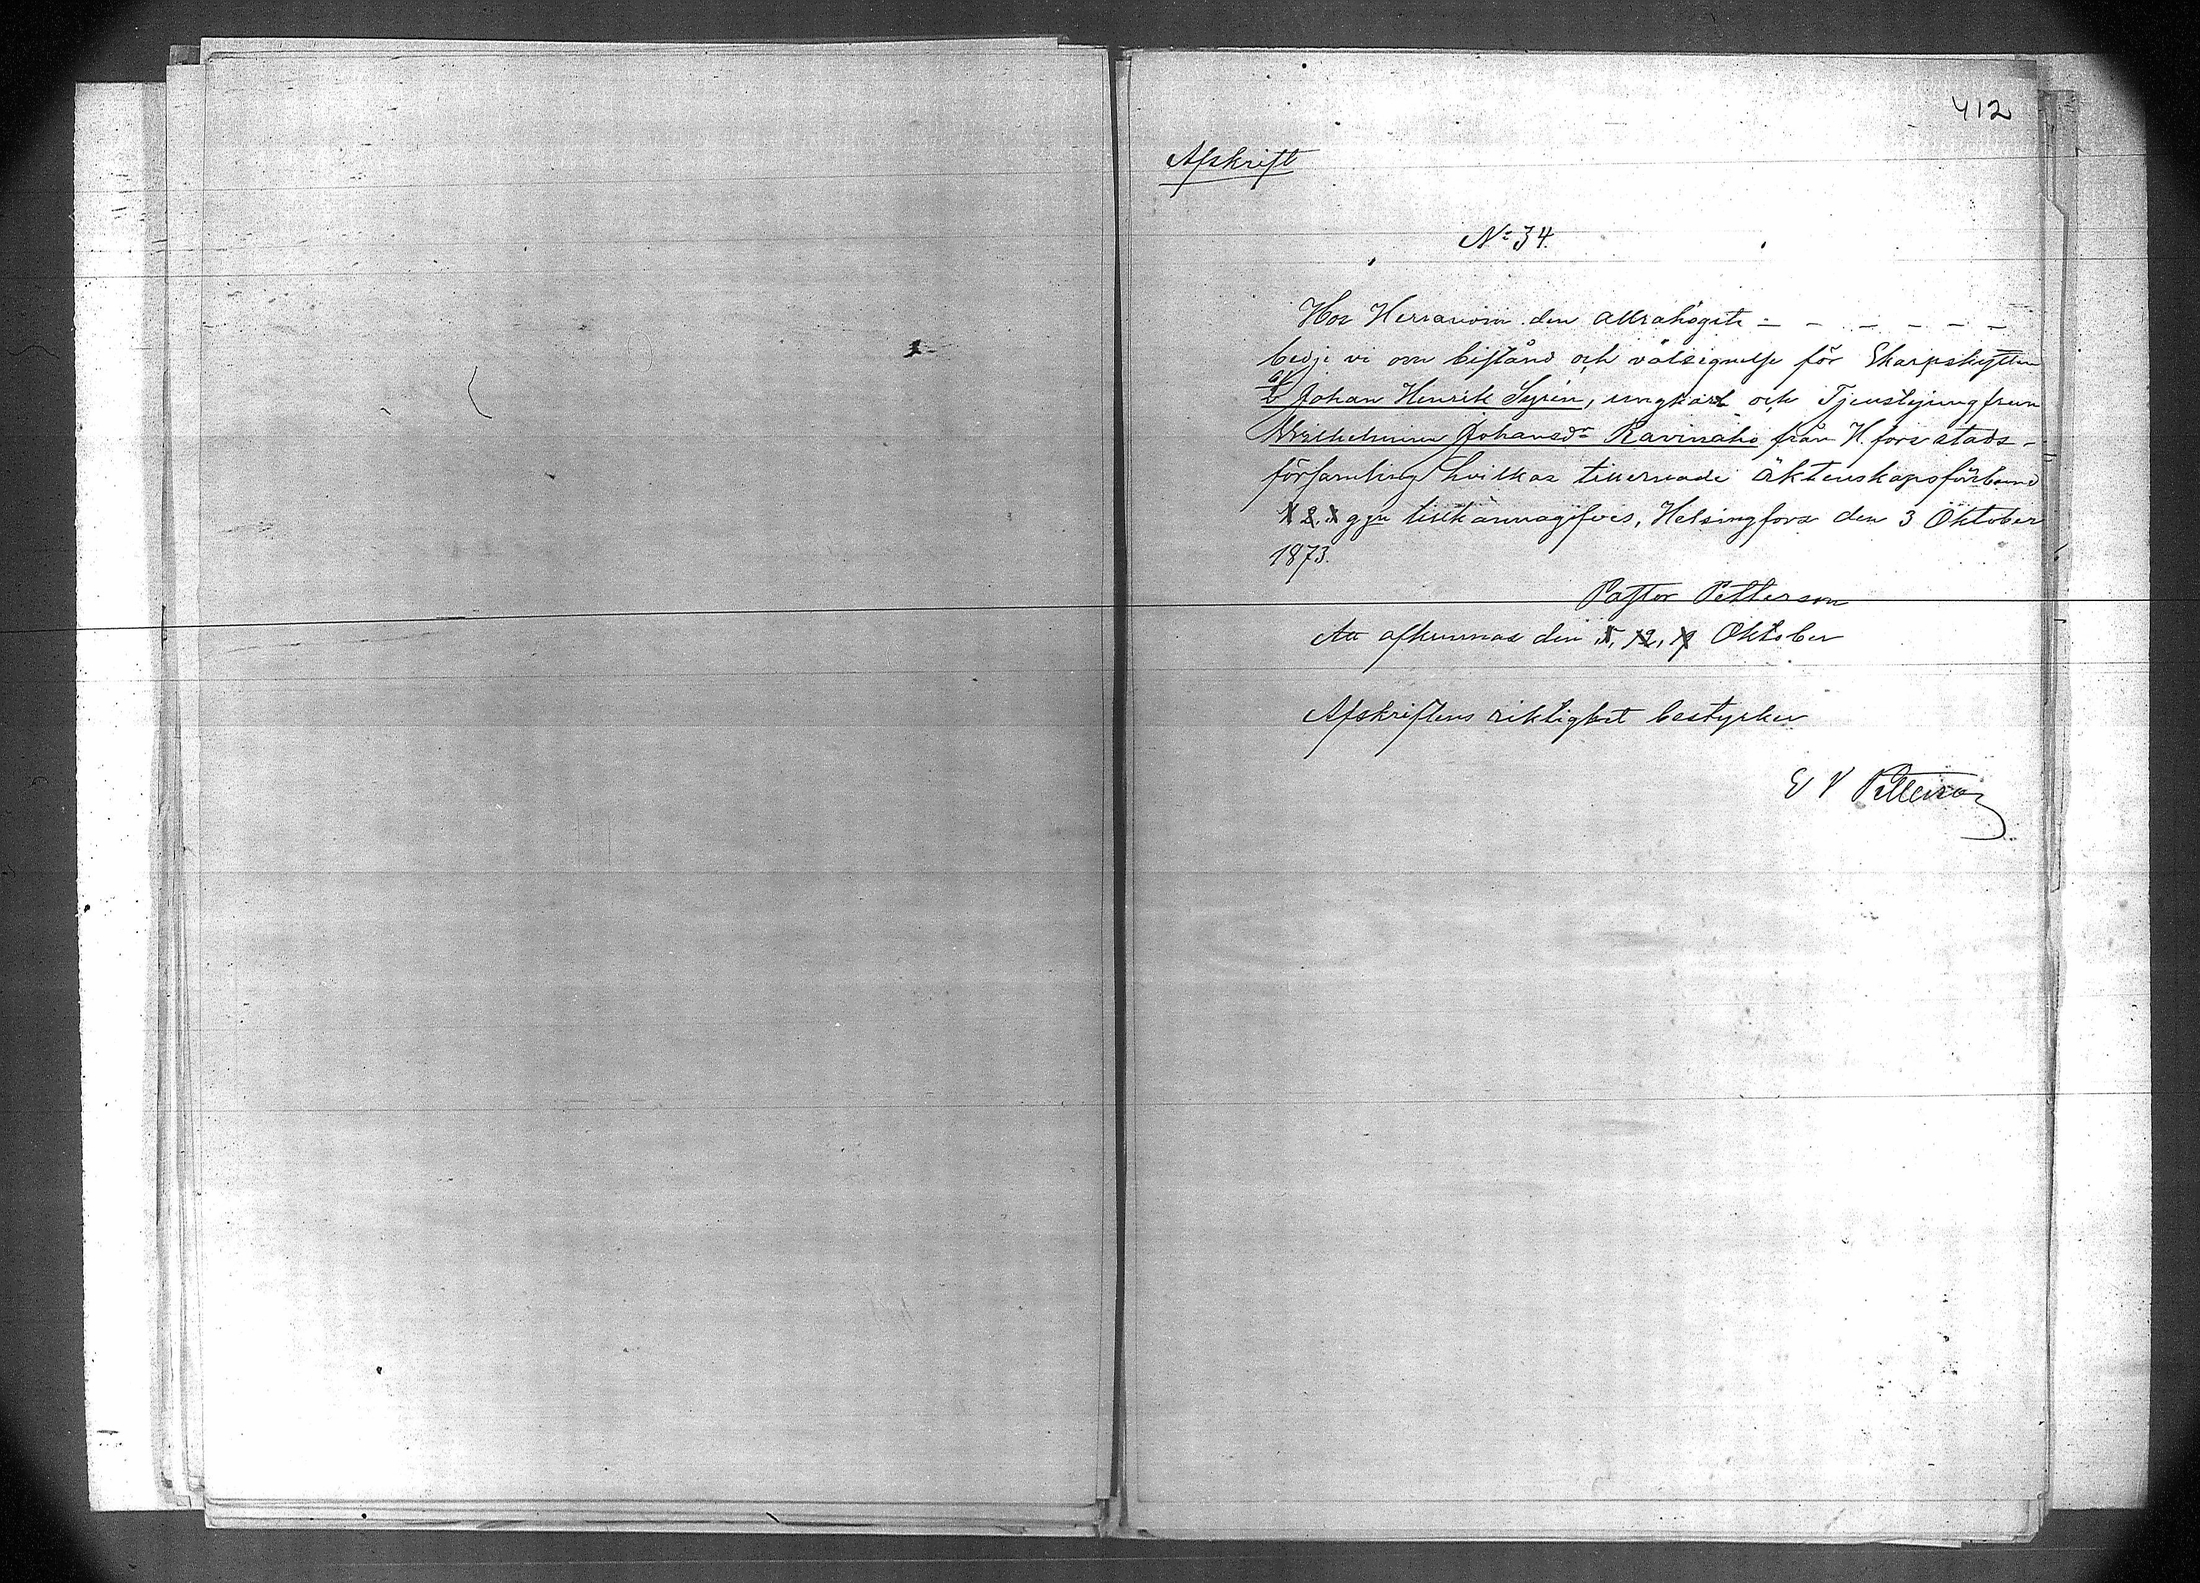 412
Afskrift
No 34.
Hos Herranom den allrahögste - - - - - -
bedje vi om bistånd och välsignelse för Skarpskytten
Johan Henrik Syrén, ungkarl och Tjenstejungfrun
Wilhelmina Johansdr Ravinaho från H.fors stads-
församling hvilkas tillernade äktenskapsförbund
1 2. 3 ggn tillkännagifves, Helsingfors den 3 Oktober
1873.
Pastor Petterson
Att afkunnas den 5, 12, 19 Oktober
Afskriftens riktighet bestyrker
E V Petterson